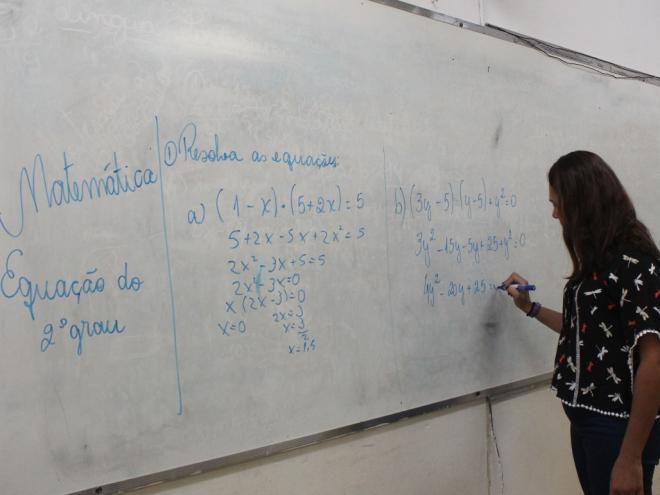 Matemática
Equação do
2º grau
① Resolva as equações:
a) (1 - x) · (5 + 2x) = 5
5 + 2x - 5x + 2x² = 5
2x² - 3x + 5 = 5
2x² - 3x = 0
x (2x - 3) = 0
x = 0
2x = 3
x = 3/2
x = 1,5
b) (3y - 5) · (y - 5) + y² = 0
3y² - 15y - 5y + 25 + y² = 0
4y² - 20y + 25 =